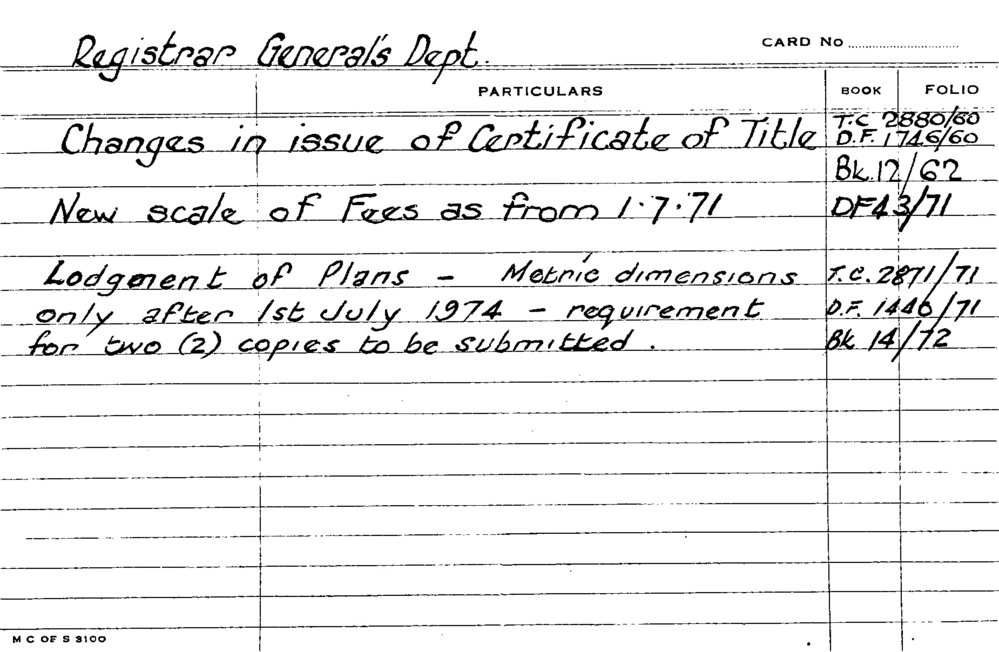 Registrar General's Dept.
CARD No
PARTICULARS BOOK FOLIO
Changes in issue of Certificate of Title T.C 2880/60
D.F. 1746/60
Bk.12/62
New scale of Fees as from 1.7.71 DF43/71
Lodgment of Plans - Metric dimensions T.C. 2871/71
only after 1st July 1974 - requirement D.F. 1446/71
for two (2) copies to be submitted. Bk 14/72
M C OF S 3100